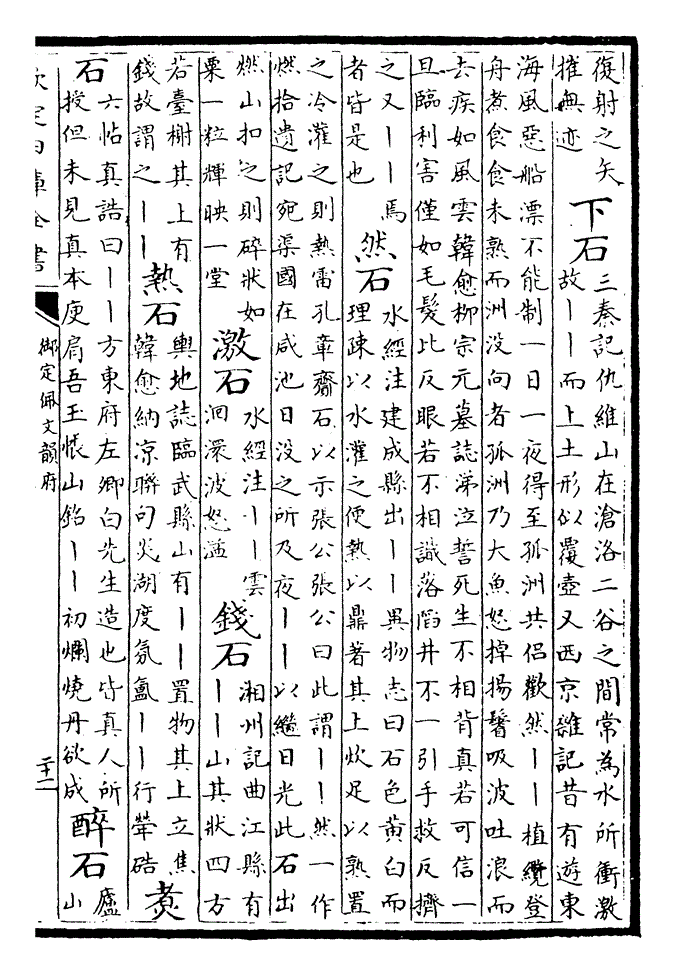 復射之矢
摧無迹
下石
三秦記仇維山在滄洛二谷之間常為水所衝激
故丨丨而上土形似覆壺又西京雜記昔有遊東
海風惡船漂不能制一日一夜得至孤洲共侶歡然丨丨植纜登
舟煮食食未熟而洲没向者孤洲乃大魚怒掉揚鬐吸波吐浪而
去疾如風雲韓愈柳宗元墓誌涕泣誓死生不相背真若可信一
旦臨利害僅如毛髮比反眼若不相識落陷井不一引手救反擠
之又丨丨焉
者皆是也
然石
水經注建成縣出丨丨異物志曰石色黄白而
理疎以水灌之便熱以鼎著其上炊足以熟置
之冷灌之則熱雷孔章齎石以示張公張公曰此謂丨丨然一作
燃拾遺記宛渠國在咸池日没之所及夜丨丨以繼日光此石出
燃山扣之則碎狀如
粟一粒輝映一堂
激石
水經注丨丨雲
洄澴波怒溢
錢石
湘州記曲江縣有
丨丨山其狀四方
若臺榭其上有
錢故謂之丨丨
熱石
輿地誌臨武縣山有丨丨置物其上立焦
韓愈納凉聯句炎湖度氛氲丨丨行犖硞
煮
石
六帖真誥曰丨丨方東府左卿白先生造也皆真人所
授但未見真本庾肩吾玉帳山銘丨丨初爛燒丹欲成
醉石
廬
山
欽定四庫全書
御定佩文韻府
二十二